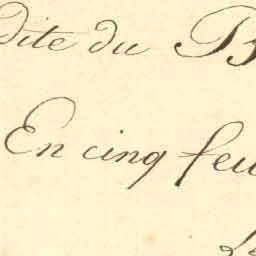 dite du B
En cinq feu